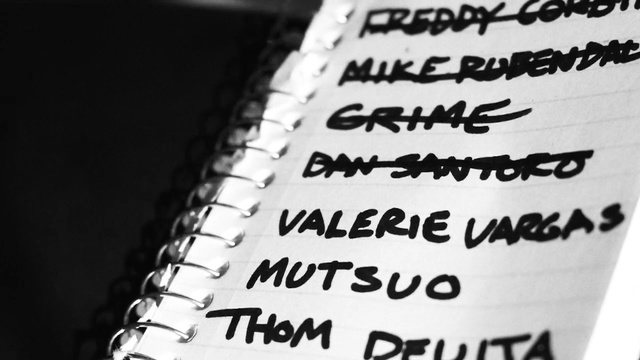 FREDDY CORBIN
MIKE RUBENDALL
GRIME
DAN SANTORO
VALERIE VARGAS
MUTSUO
THOM DEVITA